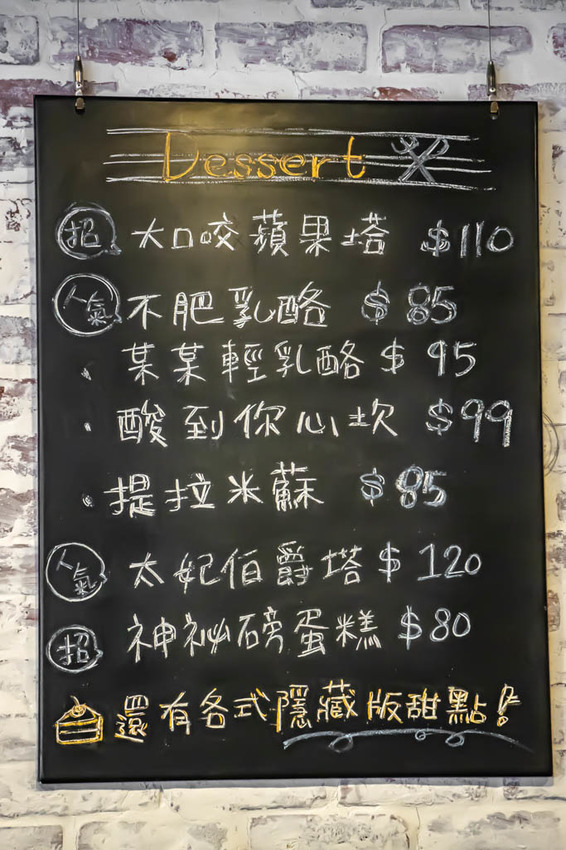 Dessert
招 大口咬蘋果塔 $110
人氣 不肥乳酪 $85
· 某某輕乳酪 $95
· 酸到你心坎 $99
· 提拉米蘇 $85
人氣 太妃伯爵塔 $120
招 神祕磅蛋糕 $80
還有各式隱藏版甜點!